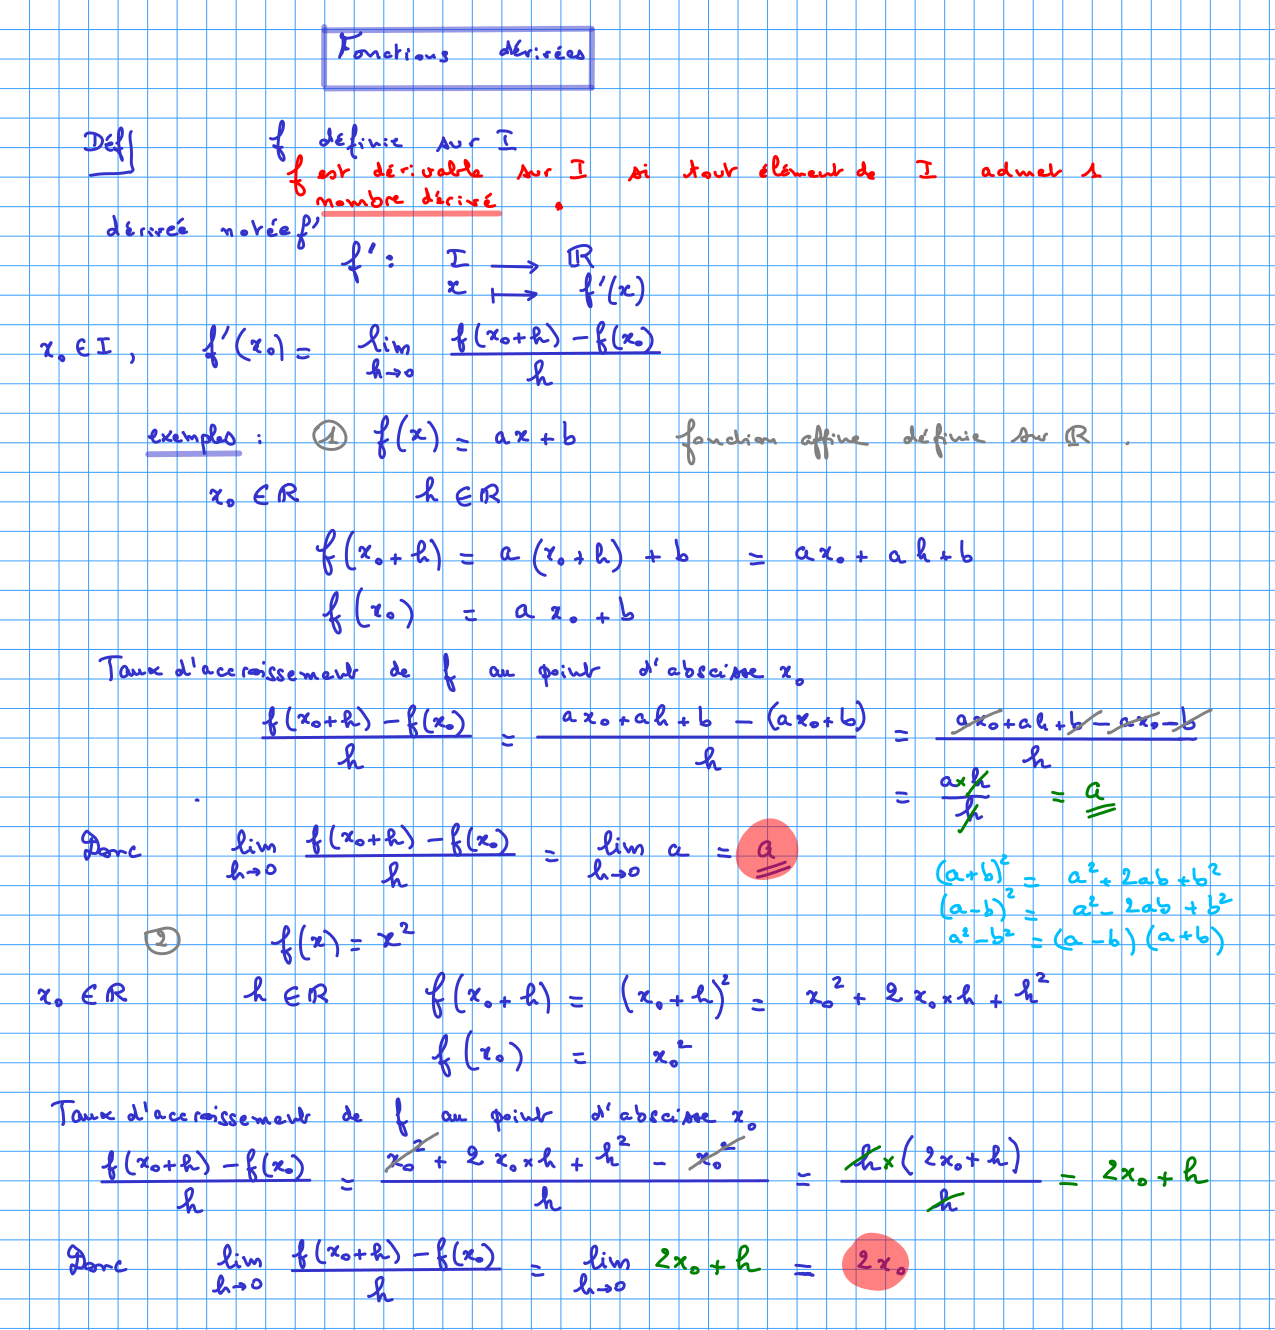 Fonctions dérivées
Déf f définie sur I
f est dérivable sur I si tout élément de I admet 1
nombre dérivé .
dérivée notée f'
f' : I ⟶ ℝ
x ⟼ f'(x)
x₀ ∈ I , f'(x₀) = lim_{h→0} (f(x₀+h) − f(x₀))/h
exemples : ① f(x) = ax + b fonction affine définie sur ℝ .
x₀ ∈ ℝ h ∈ ℝ
f(x₀ + h) = a (x₀ + h) + b = a x₀ + a h + b
f(x₀) = a x₀ + b
Taux d'accroissement de f au point d'abscisse x₀
(f(x₀+h) − f(x₀))/h = (a x₀ + a h + b − (a x₀ + b))/h = (a x₀ + a h + b − a x₀ − b)/h
= (a × h)/h = a
Donc lim_{h→0} (f(x₀+h) − f(x₀))/h = lim_{h→0} a = a
(a+b)² = a² + 2ab + b²
(a−b)² = a² − 2ab + b²
a² − b² = (a−b)(a+b)
② f(x) = x²
x₀ ∈ ℝ h ∈ ℝ f(x₀ + h) = (x₀ + h)² = x₀² + 2 x₀ × h + h²
f(x₀) = x₀²
Taux d'accroissement de f au point d'abscisse x₀
(f(x₀+h) − f(x₀))/h = (x₀² + 2 x₀ × h + h² − x₀²)/h = (h × (2x₀ + h))/h = 2x₀ + h
Donc lim_{h→0} (f(x₀+h) − f(x₀))/h = lim_{h→0} 2x₀ + h = 2x₀